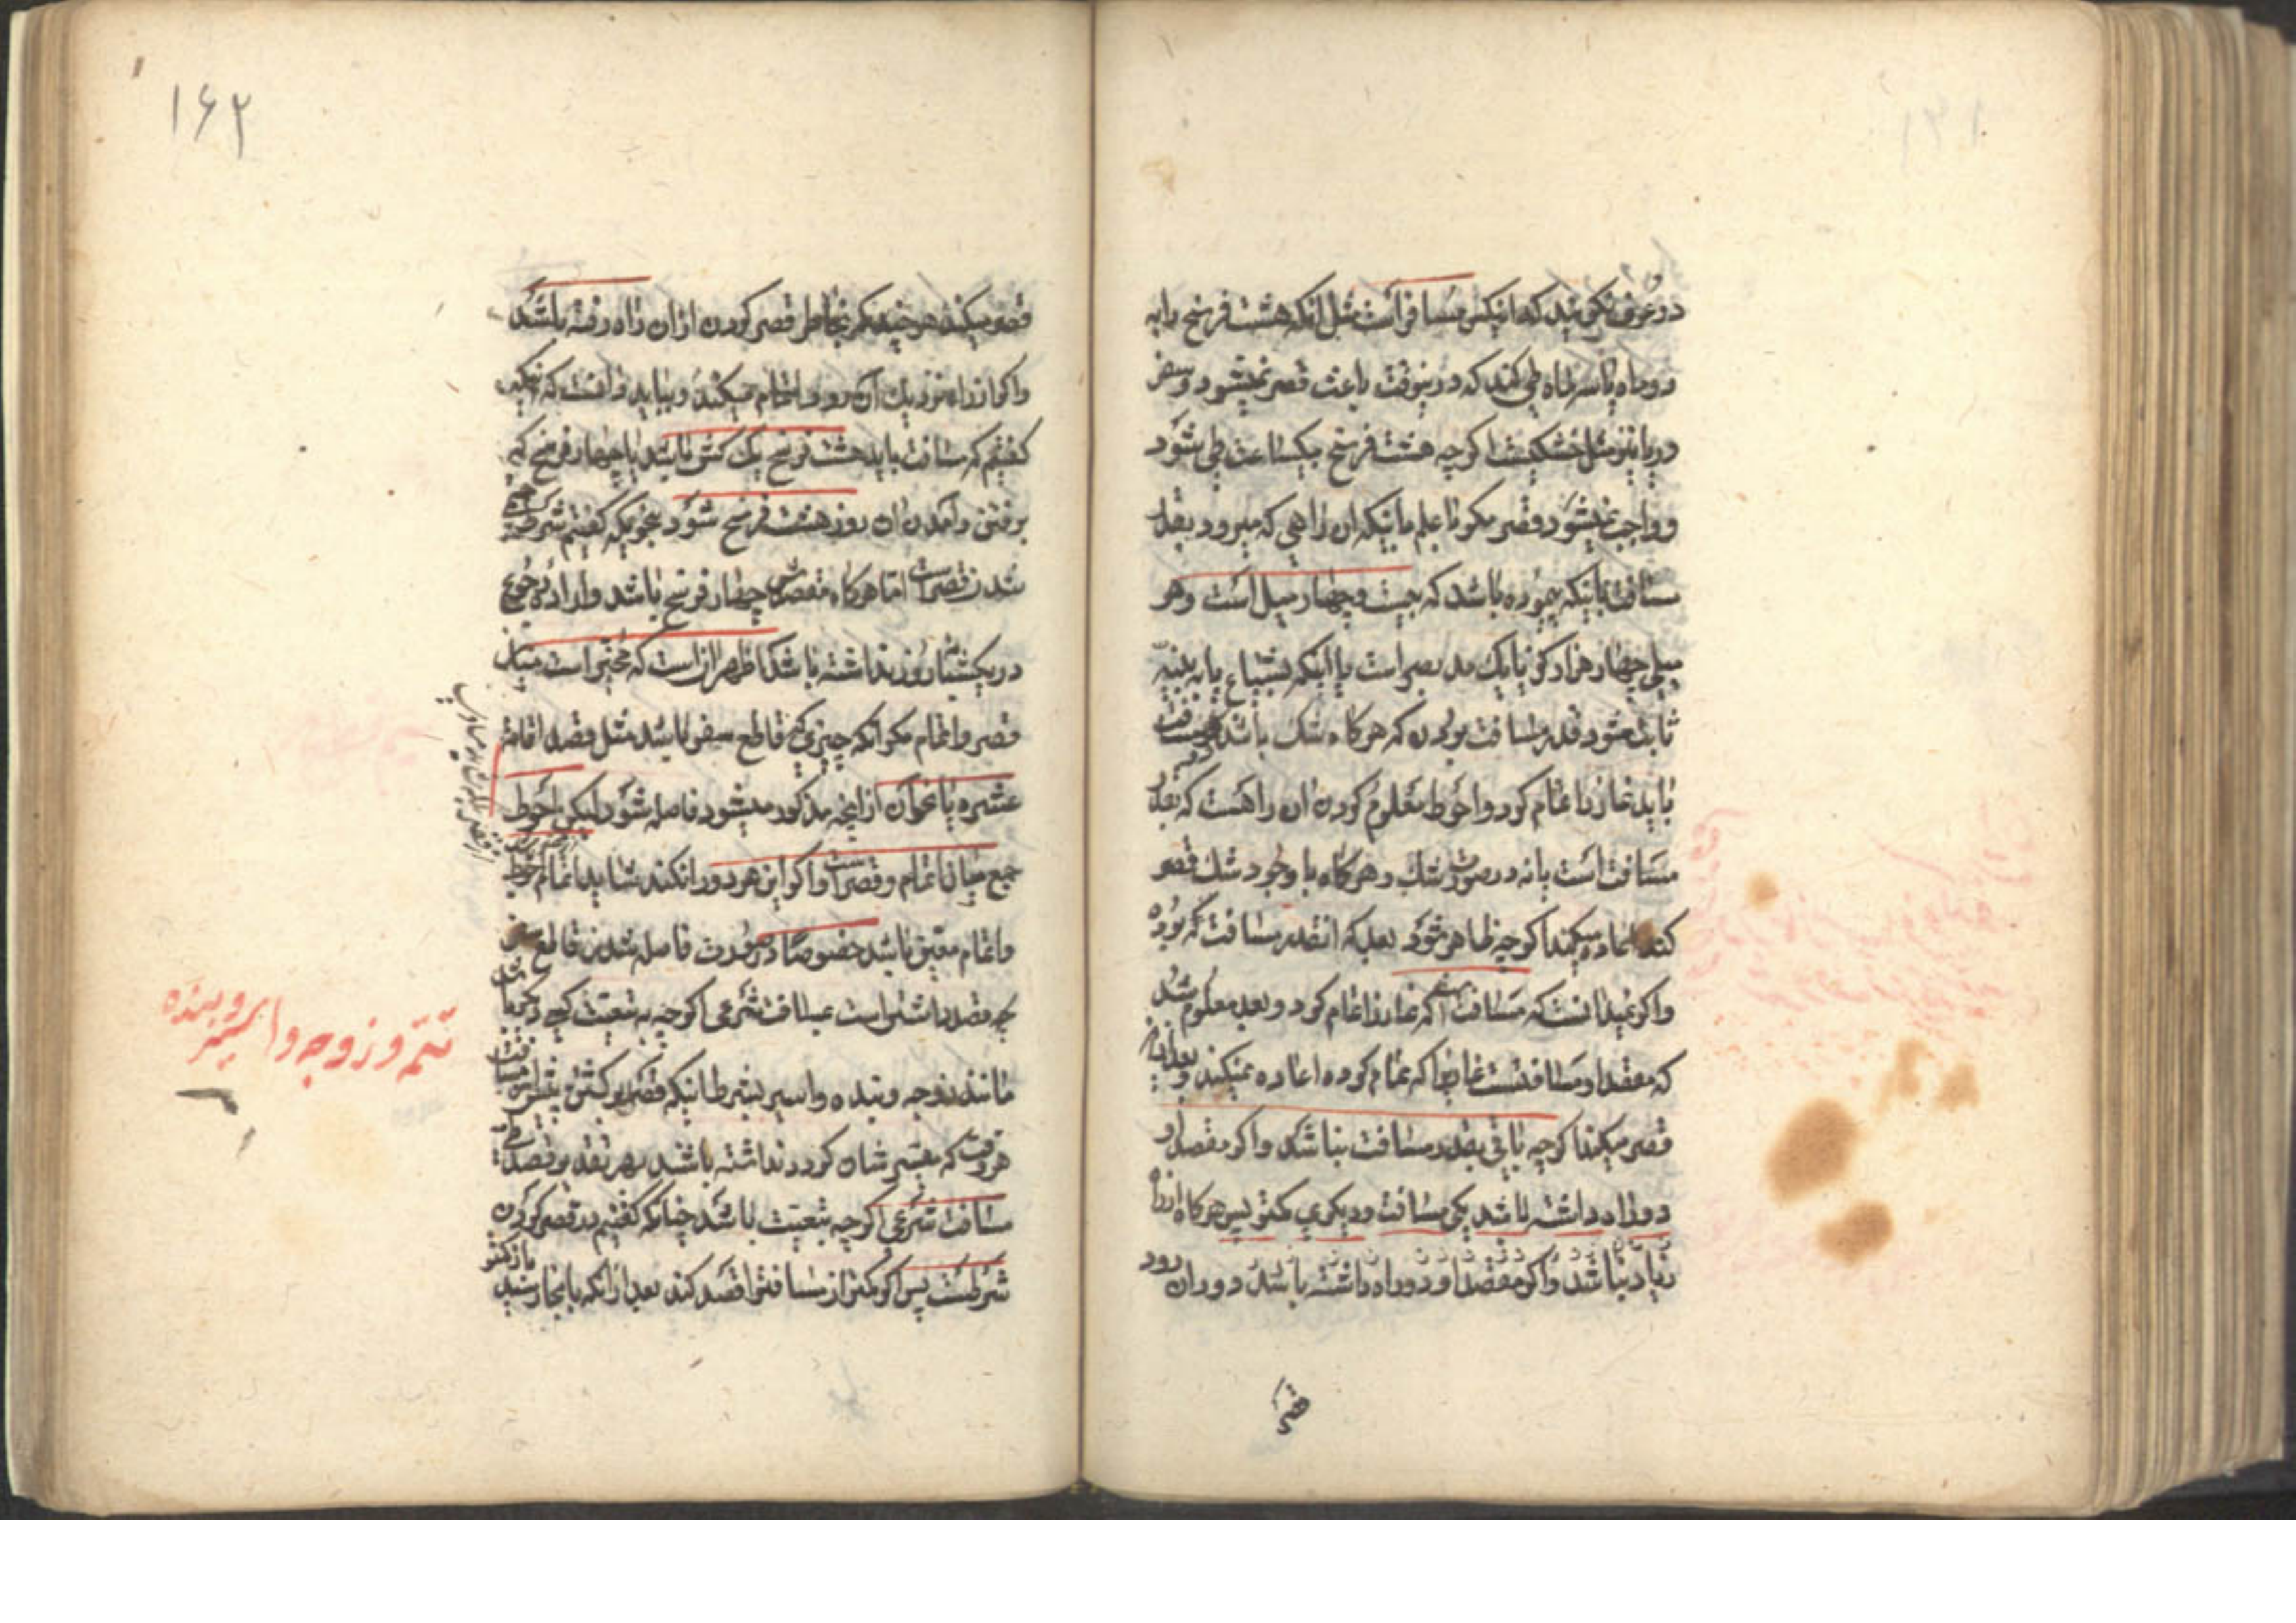 در عرف نگویند که اینکس مسافر است مثل آنکه هشت فرسخ را به
دو ماه یا سه ماه طی کند که درینوقت باعث قصر نمیشود و سفر
دریا نیز مثل خشکیست اگرچه هشت فرسخ بیکساعت طی شود
و واجب نمیشود قصر مگر با علم باینکه آن راهی که میرود بقدر
مسافت یا اینکه پیموده باشد که بیست و چهار میل است و هر
میلی چهار هزار گز یا یک مد بصر است یا اینکه بشیاع یا به بینه
ثابت شود قدر مسافت بودن که هرگاه شک باشد
باید نماز را تمام کرد و احوط معلوم کردن آن راهست که بقدر
مسافت است یا نه در صورت شک و هرگاه با وجود شک قصر
کند اعاده میکند اگرچه ظاهر شود بعد که آنقدر مسافت که بوده
و اگر نمیدانست که مسافت که نماز را تمام کرد و بعد معلوم شد
که مقدار مسافتست نمازیرا که تمام کرده اعاده نمیکند و بعد از آن
قصر میکند اگرچه باقی بقدر مسافت نباشد و اگر مقصد او
دو راه داشته باشد یکی مسافت و دیگری کمتر پس هرگاه از راه
زیاد نباشد و اگر مقصد او دو راه داشته باشد دوران رود
قصر
۱۶۲
قصر میکند هر چند که بخاطر قصر کردن از آن راه رفته باشد
و اگر از راه نزدیک آن رود اتمام میکند و بباید دانست که
گفتیم که مسافت باید هشت فرسخ یک کش باشد یا چهار فرسخ که
برفتن و آمدن آن روز هشت فرسخ شود بنحویکه گفتیم شرط
شدن قصر است اما هرگاه مقصدش چهار فرسخ باشد و اراده رجوع
در یکشبانروز نداشته باشد اظهر آن است که مخیر است میان
قصر و اتمام مگر آنکه چیزی که قاطع سفر باشد مثل قصد اقامة
عشره یا نحو آن از آنچه مذکور میشود فاصله شود لیکن احوط
جمع میان اتمام و قصر است و اگر این هر دو را نکند شاید اتمام احوط
و اتمام متعین باشد خصوصا در صورت فاصله شدن قاطع سفر
چه قصد داشتن است مسافت شرعی اگرچه به تبعیت کسی دیگر باشد
مانند زوجه و بنده و اسیر بشرط اینکه قصد برگشتن پیش از مسافت
هر وقت که میسر شان گردد نداشته باشند بهر تقدیر قصد طی
مسافت شرعی اگرچه بتبعیت باشد چنانکه گفتیم در قصر کردن
شرطست پس اگر کمتر از مسافت را قصد کند بعد از آنکه بآنجا رسید بازکمتر
تتمه و زوجه و اسیر و بنده